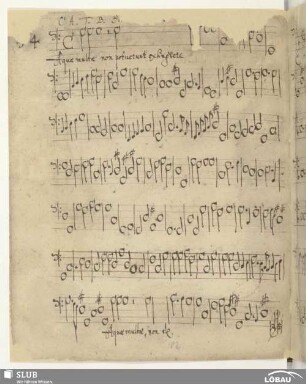 C. A. T. B. B.
4
Aquæ multæ non potuerunt extinguere
Aquæ multæ, non etc.
SLUB
Wir führen Wissen.
LÖBAU